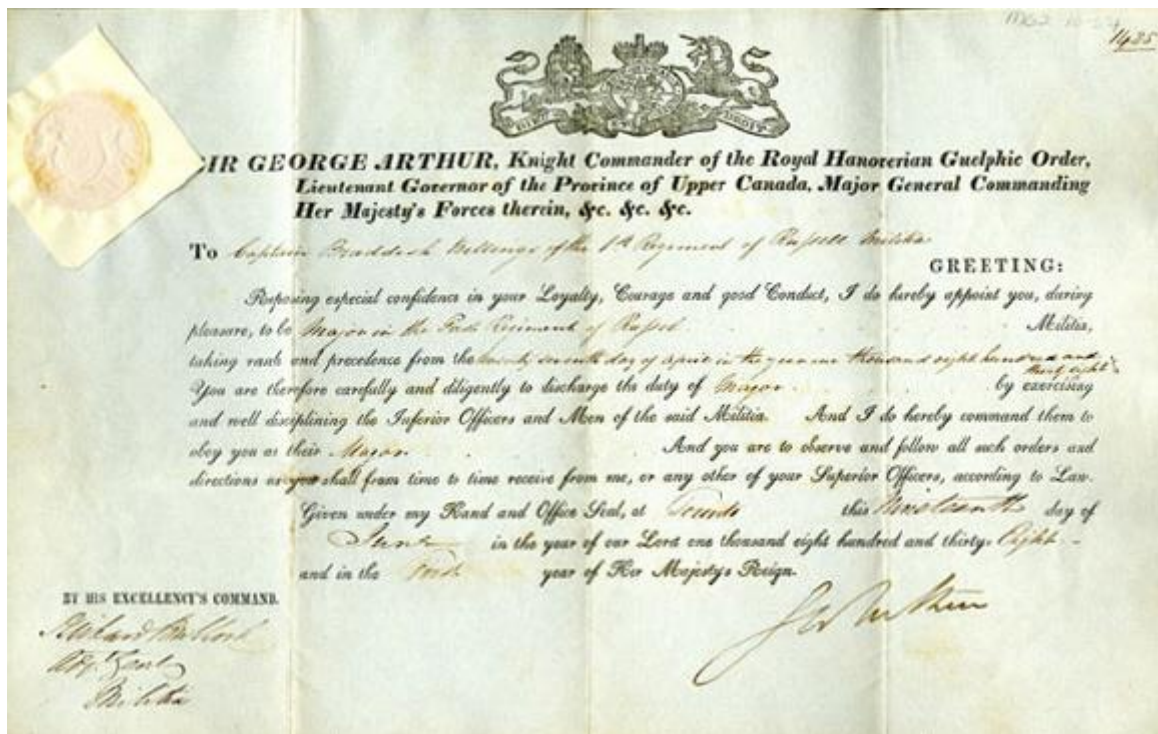 1435
DIEU ET DROIT
SIR GEORGE ARTHUR, Knight Commander of the Royal Hanoverian Guelphic Order,
Lieutenant Governor of the Province of Upper Canada, Major General Commanding
Her Majesty's Forces therein, &c. &c. &c.
To Captain Braddish Billings of the 1st Regiment of Russell Militia
GREETING:
Reposing especial confidence in your Loyalty, Courage and good Conduct, I do hereby appoint you, during
pleasure, to be Major in the Regiment of Russel Militia,
taking rank and precedence from the twenty seventh day of april in the year one thousand eight hundred and
thirty eight
You are therefore carefully and diligently to discharge the duty of Major by exercising
and well disciplining the Inferior Officers and Men of the said Militia. And I do hereby command them to
obey you as their Major And you are to observe and follow all such orders and
directions as you shall from time to time receive from me, or any other of your Superior Officers, according to Law.
Given under my Hand and Office Seal, at Toronto this Nineteenth day of
June in the year of our Lord one thousand eight hundred and thirty- Eight
and in the First year of Her Majesty's Reign.
BY HIS EXCELLENCY'S COMMAND.
Geo Arthur
Richard Bullock
Adj. Genl
Militia